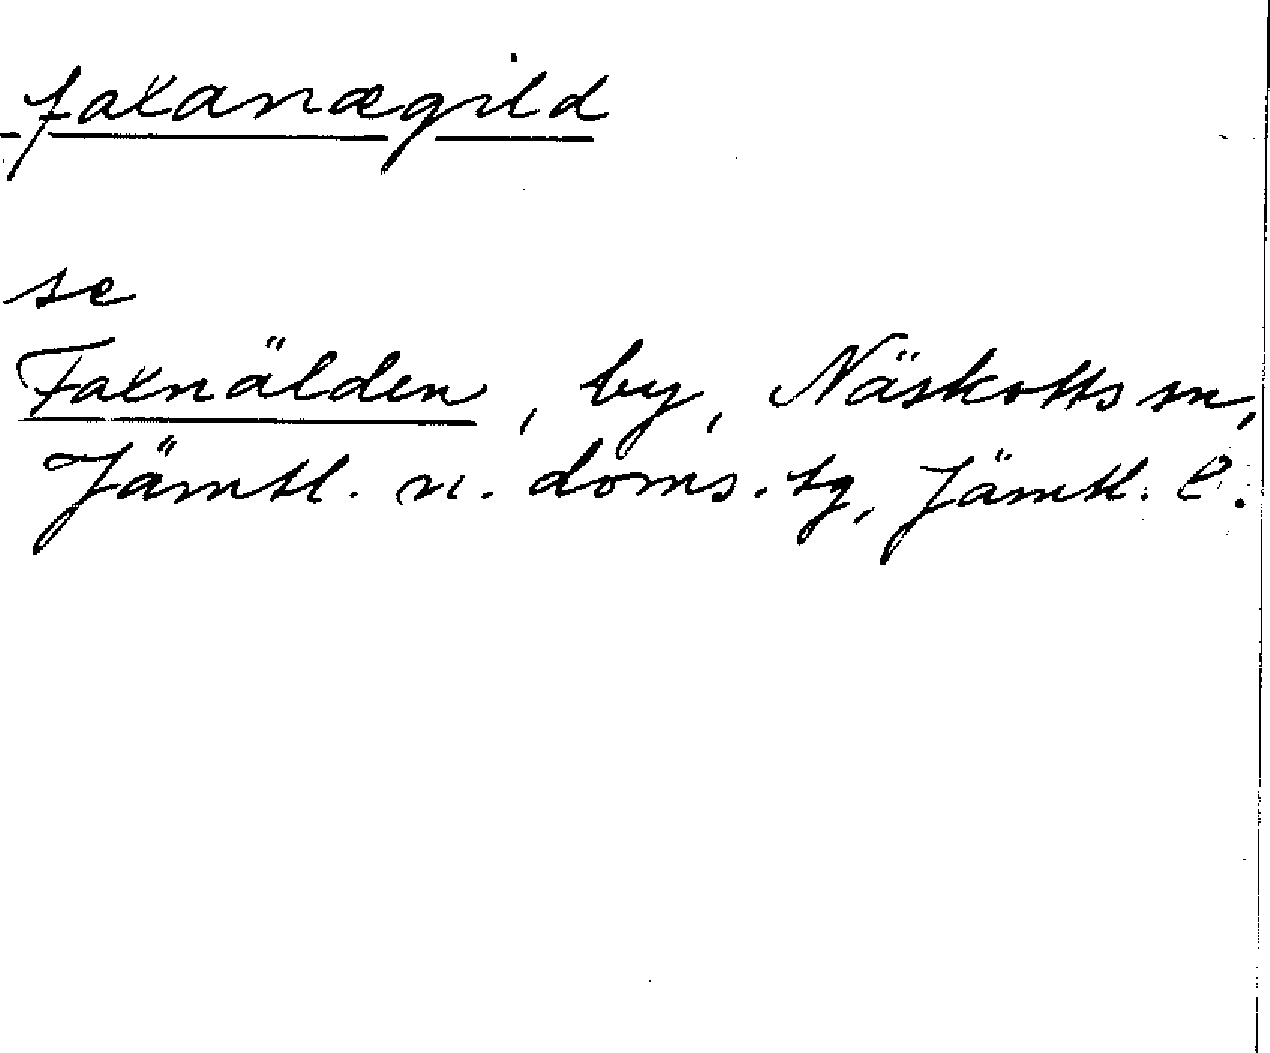 faxanægild
se
Faxnälden, by, Näskotts sn,
Jämtl. n. doms. tg, Jämtl. l.